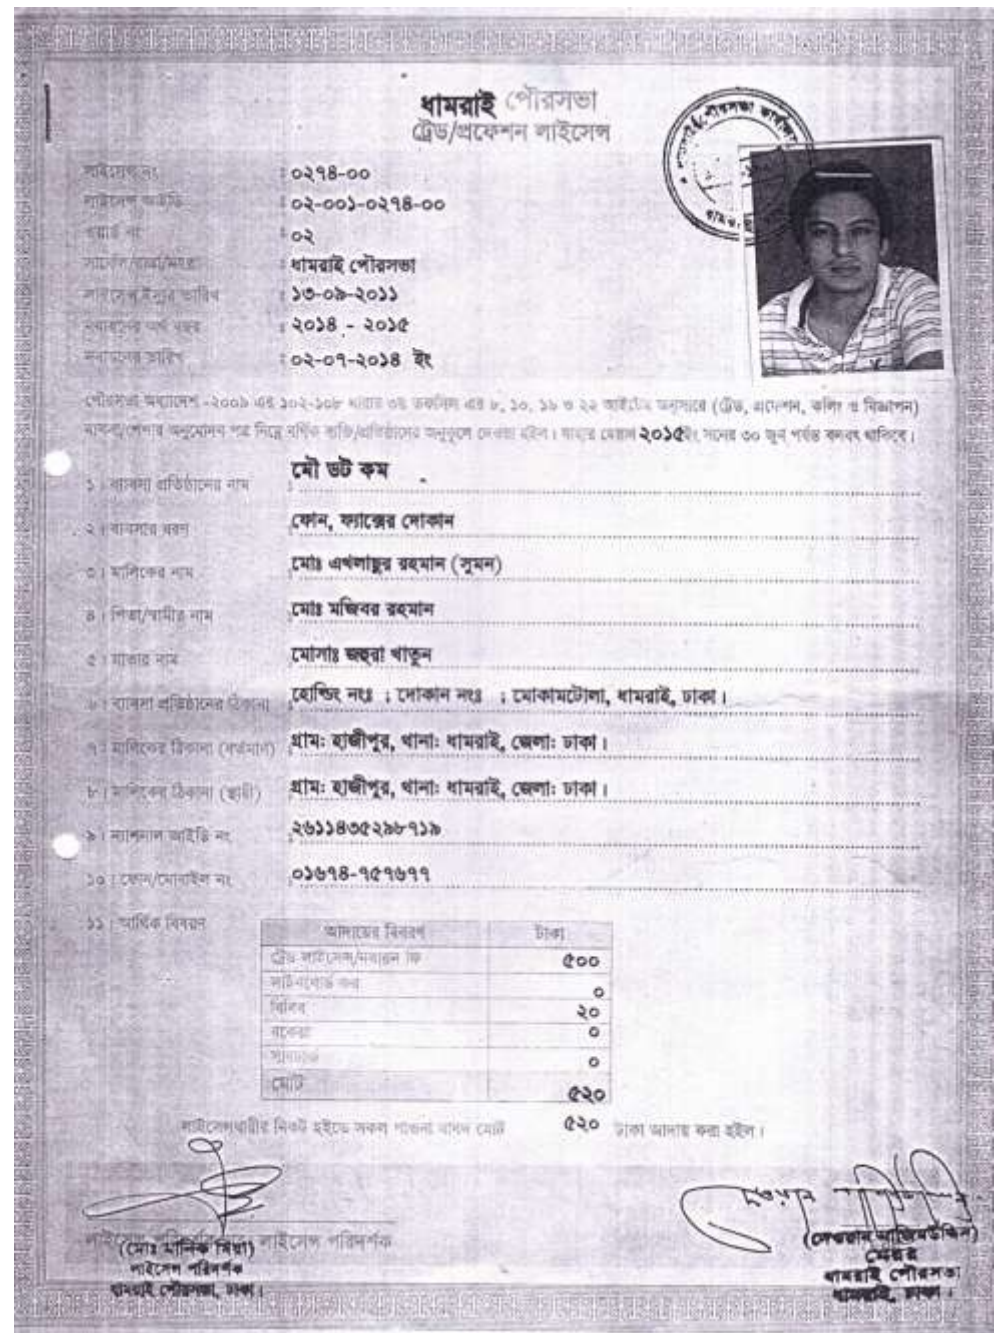 ধামরাই পৌরসভা
ট্রেড/প্রফেশন লাইসেন্স
লাইসেন্স নং : ০২৭৪-০০
লাইসেন্স আইডি : ০২-০০১-০২৭৪-০০
ওয়ার্ড নং : ০২
: ধামরাই পৌরসভা
লাইসেন্স ইস্যুর তারিখ : ১৩-০৯-২০১১
নবায়নের অর্থ বছর : ২০১৪ - ২০১৫
নবায়নের তারিখ : ০২-০৭-২০১৪ ইং
পৌরসভা অধ্যাদেশ -২০০৯ এর ১০২-১০৮ ধারার ৩য় তফসিল এর ৮, ১০, ১৯ ও ২২ আইটেম অনুসারে (ট্রেড, প্রফেশন, কলিং ও বিজ্ঞাপন)
অনুমোদন পত্র নিম্নে বর্ণিত ব্যক্তি/প্রতিষ্ঠানের অনুকূলে দেওয়া হইল। যাহার মেয়াদ ২০১৫ইং সনের ৩০ জুন পর্যন্ত বলবৎ থাকিবে।
১। ব্যবসা প্রতিষ্ঠানের নাম : মৌ ডট কম
২। ব্যবসার ধরণ : ফোন, ফ্যাক্সের দোকান
৩। মালিকের নাম : মোঃ এখলাছুর রহমান (সুমন)
৪। পিতা/স্বামীর নাম : মোঃ মজিবর রহমান
৫। মাতার নাম : মোসাঃ জহুরা খাতুন
৬। ব্যবসা প্রতিষ্ঠানের ঠিকানা : হোল্ডিং নংঃ ; দোকান নংঃ ; মোকামটোলা, ধামরাই, ঢাকা।
৭। মালিকের ঠিকানা (বর্তমান) : গ্রাম: হাজীপুর, থানা: ধামরাই, জেলা: ঢাকা।
৮। মালিকের ঠিকানা (স্থায়ী) : গ্রাম: হাজীপুর, থানা: ধামরাই, জেলা: ঢাকা।
৯। ন্যাশনাল আইডি নং : ২৬১১৪৩৫২৯৮৭১৯
১০। ফোন/মোবাইল নং : ০১৬৭৪-৭৫৭৬৭৭
১১। আর্থিক বিবরণ
আদায়ের বিবরণ টাকা
ট্রেড লাইসেন্স/নবায়ন ফি ৫০০
সাইনবোর্ড কর ০
বিবিধ ২০
বকেয়া ০
সারচার্জ ০
মোট ৫২০
লাইসেন্সধারীর নিকট হইতে সকল পাওনা বাবদ মোট ৫২০ টাকা আদায় করা হইল।
লাইসেন্স পরিদর্শক
(মোঃ মানিক মিয়া)
লাইসেন্স পরিদর্শক
ধামরাই পৌরসভা, ঢাকা।
(দেওয়ান নাজিমউদ্দিন)
মেয়র
ধামরাই পৌরসভা
ধামরাই, ঢাকা।